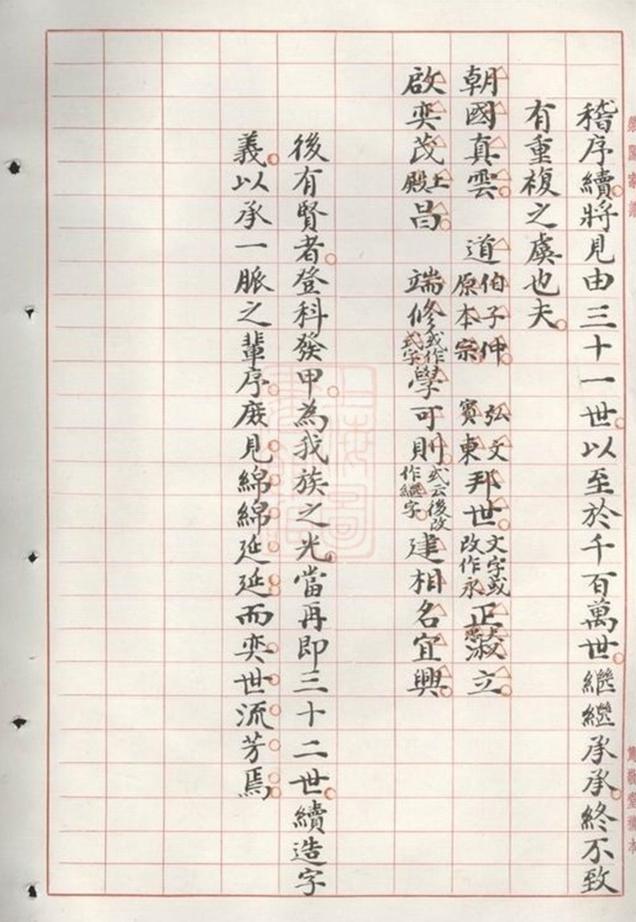 稽序續將見由三十一世以至於千百萬世繼繼承承終不致
有重複之虞也夫
朝國真雲 道 伯子仲 原本宗 弘文 寶東 邦世 文字或 改作永 正淑立
啟奕茂 上 殿 昌 端修 或作 式字 學可則 或云後改 作繼字 建相名宜興
後有賢者登科發甲為我族之光當再即三十二世續造字
義以承一脈之輩序庶見綿綿延延而奕世流芳焉